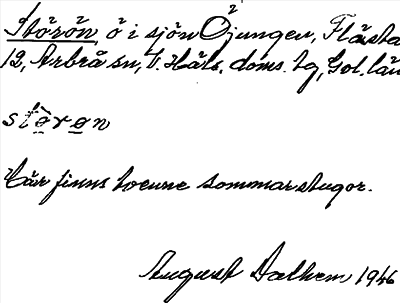 Storön, ö i sjön Öjungen, Flästa
12, Arbrå sn, V. Häls. doms. tg, Gvl. län
støron
Där finns tvenne sommarstugor.
August Dalhem 1946